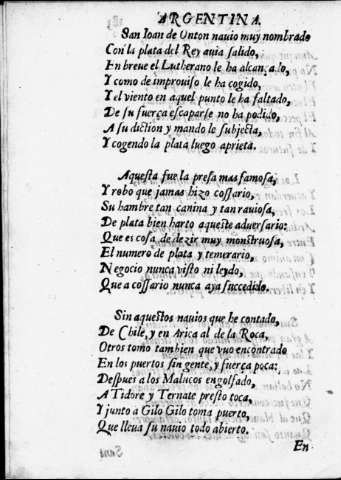 ARGENTINA.
San Ioan de Onton nauio muy nombrado
Con la plata del Rey auia salido,
En breue el Lutherano le ha alcançado,
Y como de improuiso le ha cogido,
Y el viento en aquel punto le ha faltado,
De su fuerça escaparse no ha podido,
A su diction y mando le subjecta,
Y cogendo la plata luego aprieta.
Aquesta fue la presa mas famosa,
Y robo que jamas hizo cossario,
Su hambre tan canina y tan rauiosa,
De plata bien harto aqueste aduersario:
Que es cosa de dezir muy monstruosa,
El numero de plata y temerario,
Negocio nunca visto ni leydo,
Que a cossario nunca aya succedido.
Sin aquestos nauios que he contado,
De Chile, y en Arica al de la Roca,
Otros tomo tambien que vuo encontrado
En los puertos sin gente, y fuerça poca:
Despues a los Malucos engolfado,
A Tidore y Ternate presto toca,
Y junto a Gilo Gilo toma puerto,
Que lleua su nauio todo abierto.
En